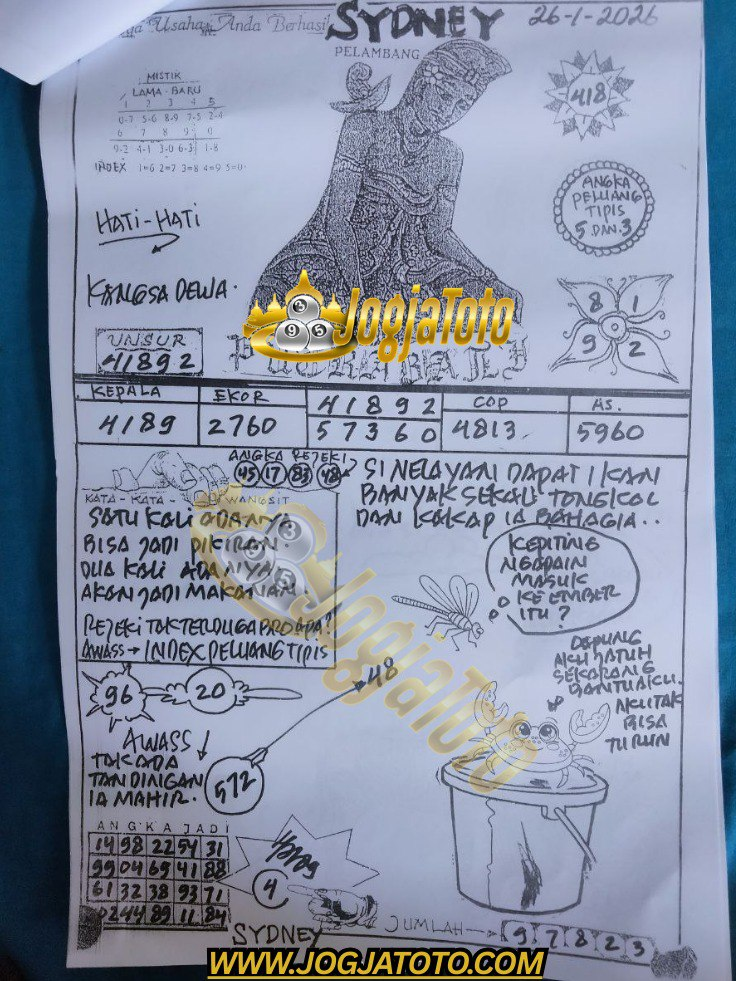 Usaha Anda Berhasil
SYDNEY
26-1-2026
PELAMBANG
MISTIK
LAMA - BARU
1 2 3 4 5
0-7 5-6 8-9 7-5 2-4
6 7 8 9 0
9-2 4-1 3-0 6-3 1-8
INDEX 1=6 2=7 3=8 4=9 5=0
418
ANGKA
PELUANG
TIPIS
5 DAN 3
HATI-HATI
KANGSA DEWA.
8 1
9 2
JogjaToto
UNSUR
41892
KEPALA
EKOR
41892
COP
AS.
4189
2760
57360
4813
5960
ANGKA REJEKI
45 17 83 48
SI NELAYAN DAPAT IKAN
BANYAK SEKALI TONGKOL
DAN KAKAP IA BAHAGIA..
KATA - KATA - WANGSIT
SATU KALI ADANYA
BISA JADI DIKIRAN
DUA KALI ADANYA
AKAN JADI MAKANAN.
REJEKI TAK TERDUGA
AWASS → INDEX PELUANG TIPIS
KEPITING
NGAPAIN
MASUK
KE EMBER
ITU?
JogjaToto
AKU JATUH
SEKARANG
BANTU AKU.
BISA
TURUN
48
96
20
AWASS
TAK ADA
TANDINGAN
IA MAHIR.
572
ANGKA JADI
14 98 22 54 31
99 04 69 41 88
61 32 38 93 71
02 44 89 11 84
4
SYDNEY
JUMLAH
9 7 8 2 3
WWW.JOGJATOTO.COM